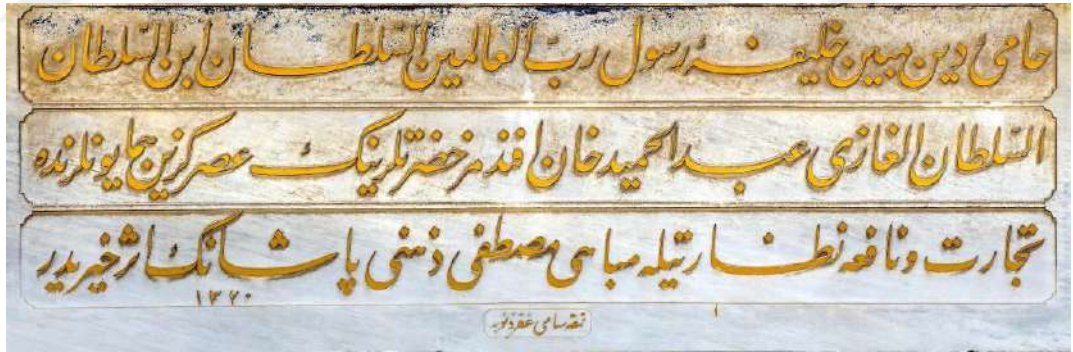 حامئ دین مبین خلیفۀ رسول رب العالمین السلطان ابن السلطان
السلطان الغازی عبدالحمید خان افندمز حضرتلرینک عصر گزین همایونلرنده
تجارت و نافعه نظارتیله مباهی مصطفی ذهنی پاشانک اثر خیریدر
۱۳۲۰
نمقه سامی غفر ذنوبه